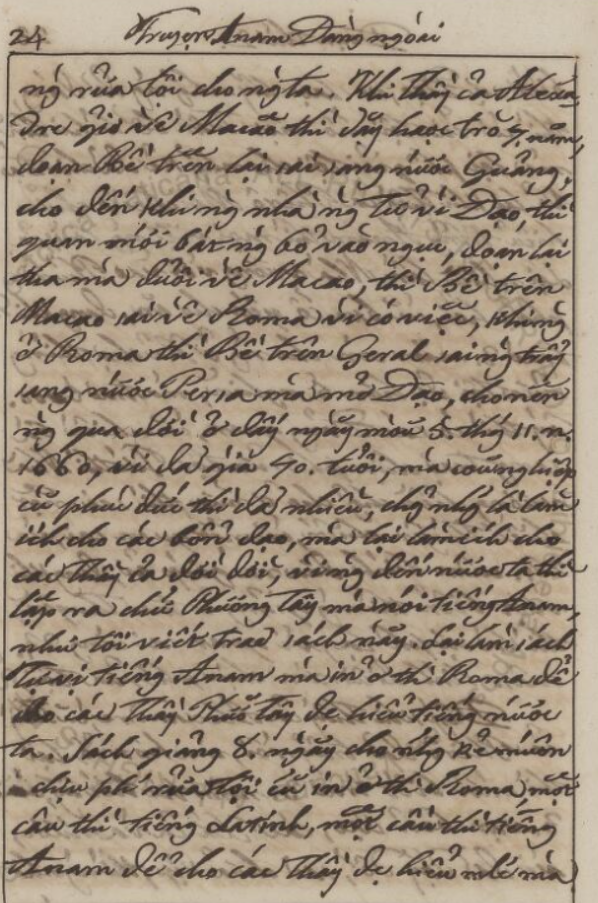 24 Truyện Anam Đàng ngoài
ng rửa tôi cho ng ta. Khi Thầy cả Alexan
dre gio về Macaõ thì dạy học trò 7. năm,
đoạn Bề trên lại sai sang nước Quảng,
cho đến khi ng nhà ng Vì Đạo, thì
quan mới bắt ng bỏ vào ngục, đoạn lại
tha mà đuổi về Macao, thì Bề trên
Macao sai về Roma vì có việc, khi ng
ở Roma thì Bề trên Geral sai ng trảy
sang nước Persia mà mở Đạo, cho nên
ng qua đời ở đấy ngày mòu 5. thg 11. n.
1660, vì đã già 70. tuổi, mà coũng
cũ phúc đức thì đã nhiều, chg nhg là làm
ích cho các bổn đạo, mà lại làm ích cho
các Thầy cả đời đời, vì ng đến nước ta thì
lập ra chữ Phương Tây mà nói tiếng Anam,
như tôi viết trao sách này. Lại làm sách
Tự vị tiếng Anam mà in ở th Roma để
cho các Thầy Phươ Tây dẹ hiểu tiếng nước
ta. Sách giảng 8. ngày cho nhg kẻ muốn
chịu ph rửa tội cũ in ở th Roma một
câu thì tiếng Latinh, một câu thì tiếng
Anam để cho các Thầy dẹ hiểu mlẽ mà